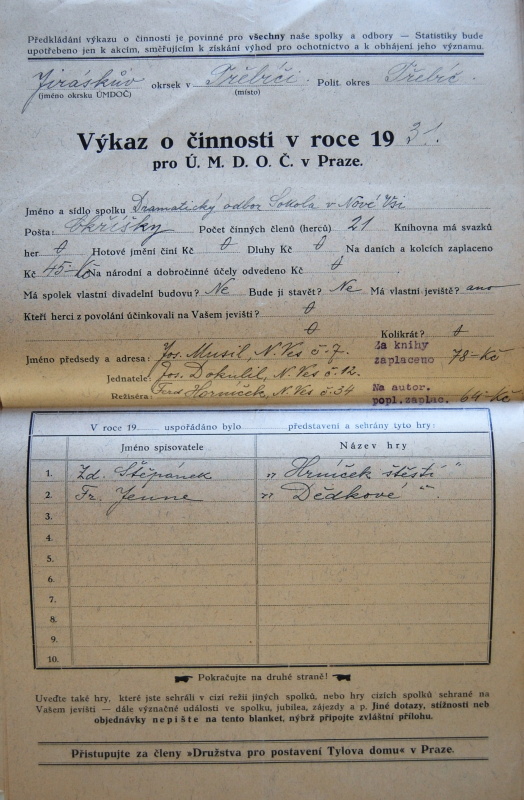 Předkládání výkazu o činnosti je povinné pro všechny naše spolky a odbory — Statistiky bude
upotřebeno jen k akcím, směřujícím k získání výhod pro ochotnictvo a k obhájení jeho významu.
Jiráskův okrsek v Třebíči. Polit. okres Třebíč.
(jméno okrsku ÚMDOČ) (místo)
Výkaz o činnosti v roce 1931.
pro Ú. M. D. O. Č. v Praze.
Jméno a sídlo spolku Dramatický odbor Sokola v Nové Vsi
Pošta: Okříšky Počet činných členů (herců) 21 Knihovna má svazků
her 0 Hotové jmění činí Kč 0 Dluhy Kč 0 Na daních a kolcích zaplaceno
Kč 45·Kč Na národní a dobročinné účely odvedeno Kč 0
Má spolek vlastní divadelní budovu? Ne Bude ji stavět? Ne Má vlastní jeviště? ano
Kteří herci z povolání účinkovali na Vašem jevišti? 0
0 Kolikrát? 0
Jméno předsedy a adresa: Jos. Musil, N. Ves č. 7. Za knihy
zaplaceno 78·Kč
Jednatele: Jos. Dokulil, N. Ves č. 12.
Režiséra: Ferd. Horníček, N. Ves č. 34 Na autor.
popl. zaplac. 64·Kč
V roce 19 uspořádáno bylo představení a sehrány tyto hry:
Jméno spisovatele Název hry
1. Zd. Štěpánek „Hrníček štěstí“
2. Fr. Jenne „Dědkové“.
3.
4.
5.
6.
7.
8.
9.
10.
Pokračujte na druhé straně!
Uveďte také hry, které jste sehráli v cizí režii jiných spolků, nebo hry cizích spolků sehrané na
Vašem jevišti — dále význačné události ve spolku, jubilea, zájezdy a p. Jiné dotazy, stížnosti neb
objednávky nepište na tento blanket, nýbrž připojte zvláštní přílohu.
Přistupujte za členy »Družstva pro postavení Tylova domu« v Praze.